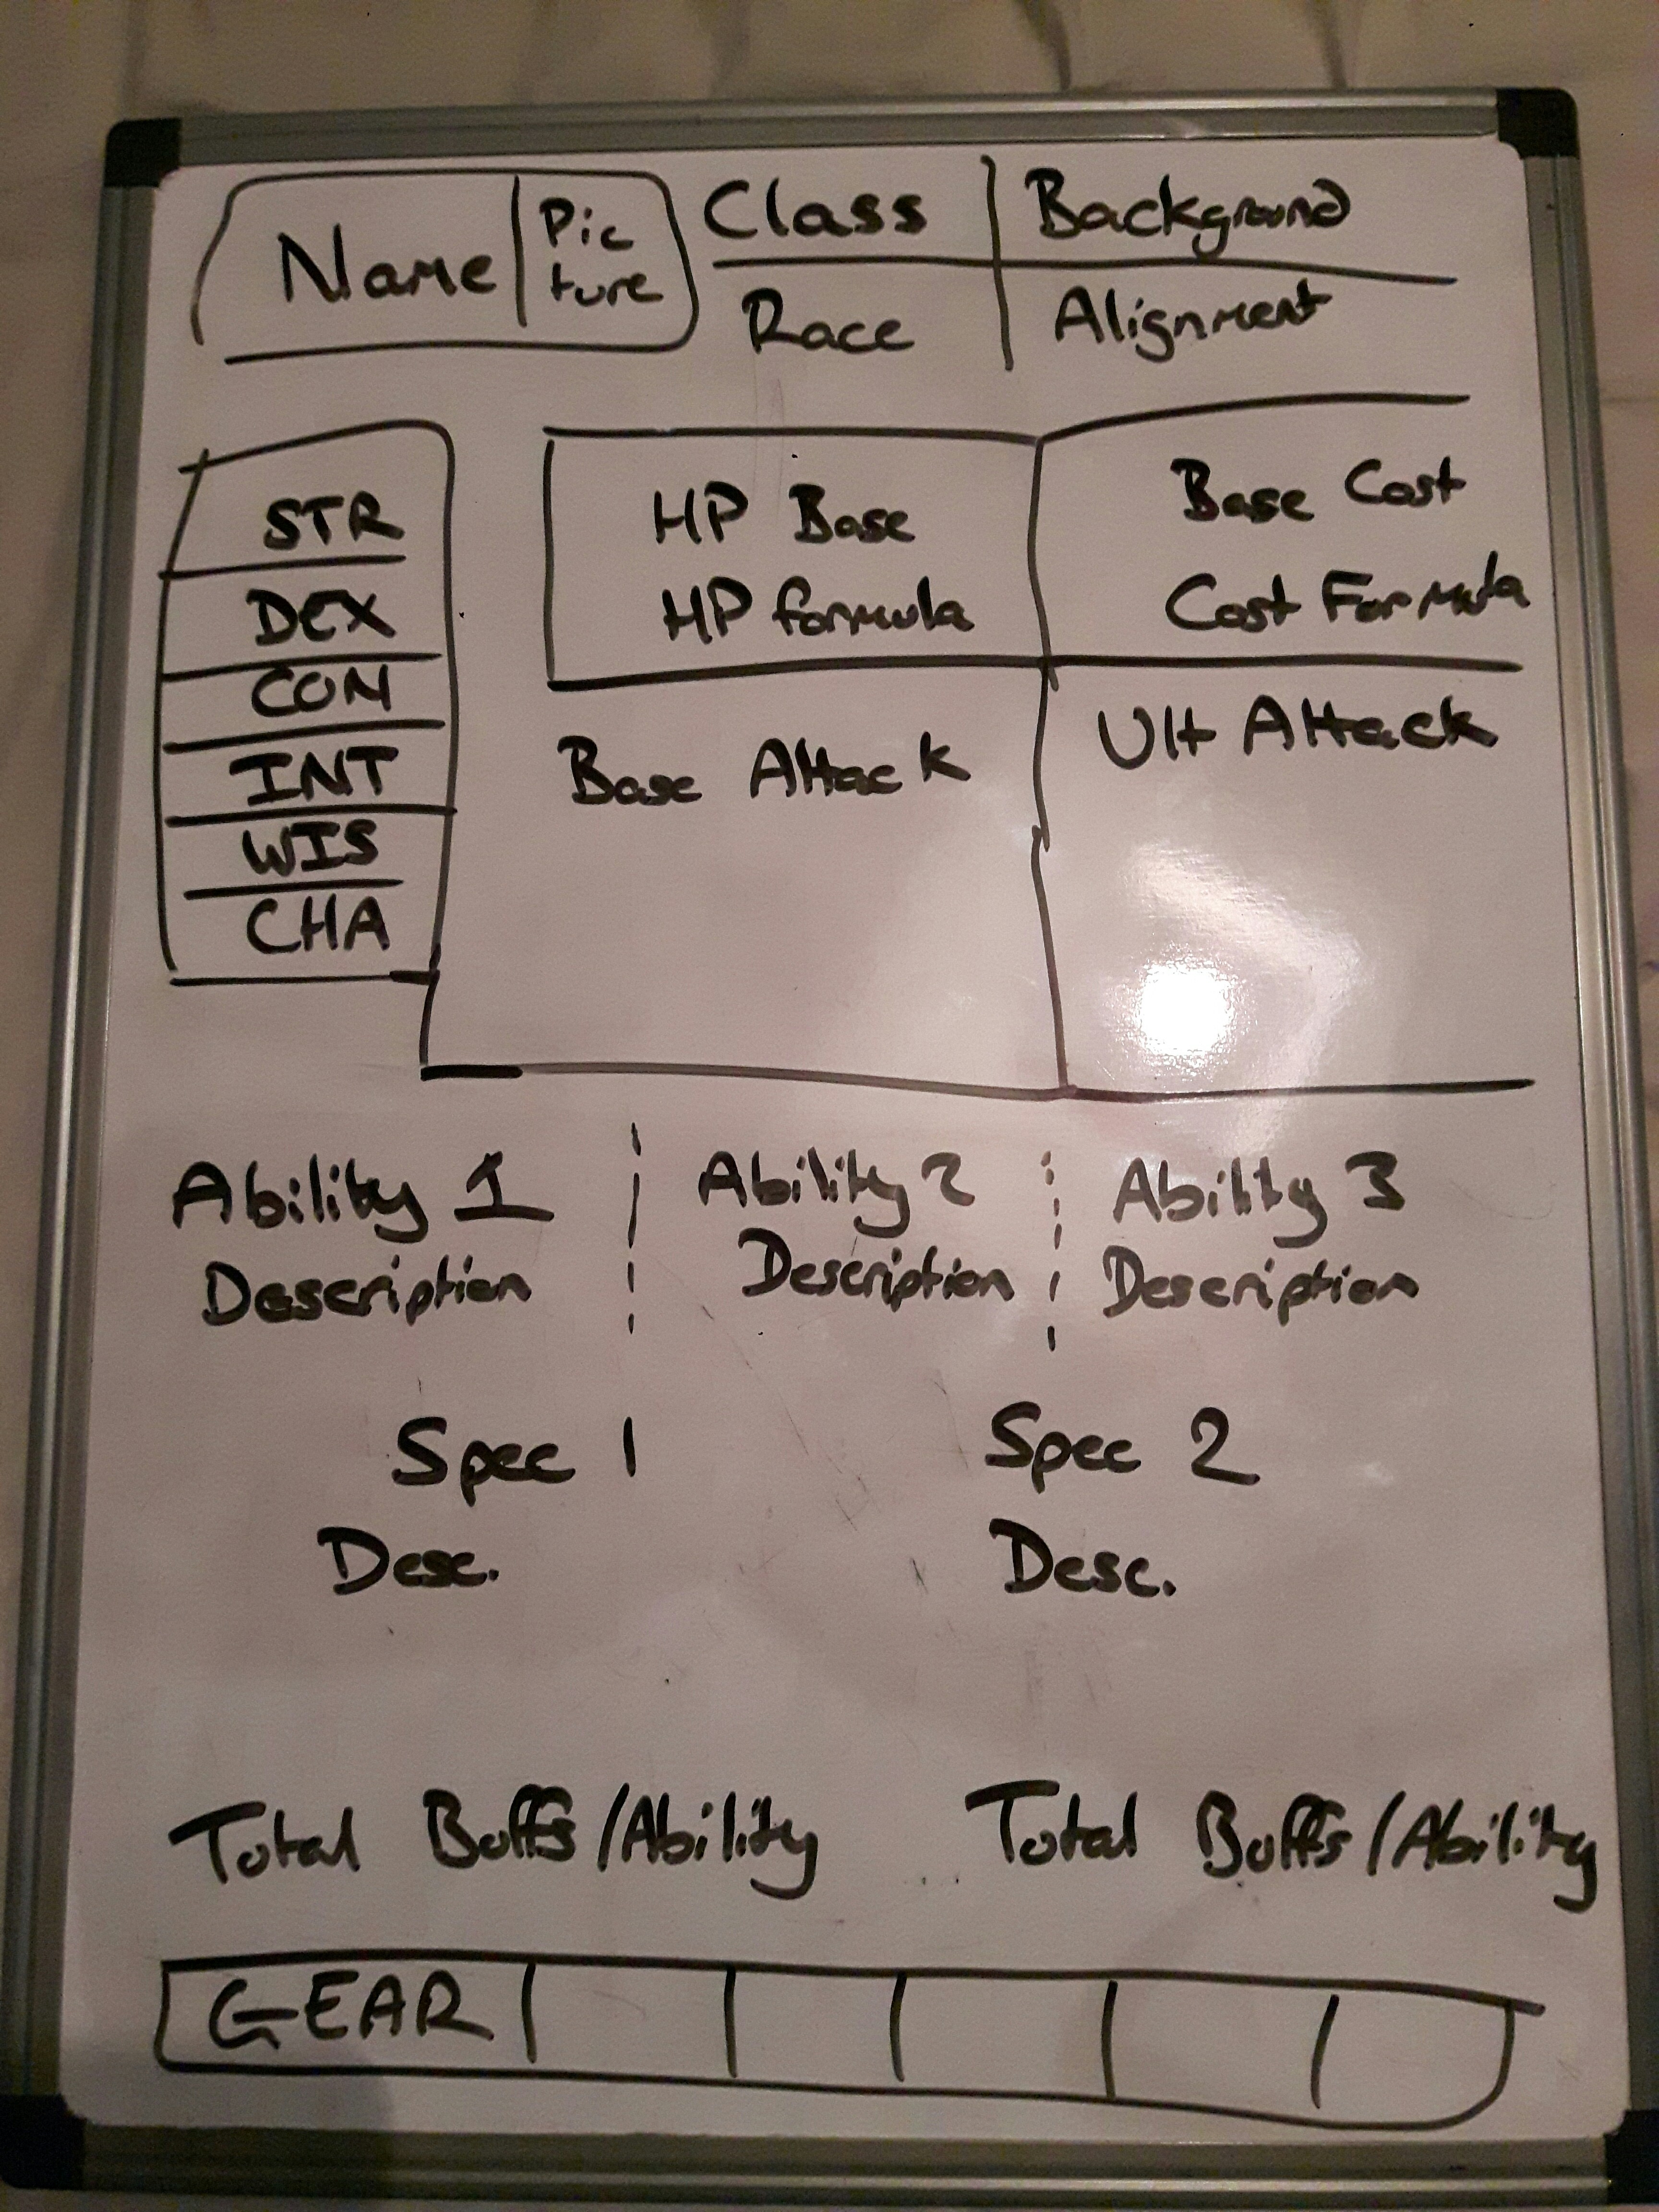 Name
Pic
ture
Class
Background
Race
Alignment
STR
DEX
CON
INT
WIS
CHA
HP Base
HP formula
Base Cost
Cost Formula
Base Attack
Ult Attack
Ability 1
Description
Ability 2
Description
Ability 3
Description
Spec 1
Desc.
Spec 2
Desc.
Total Buffs/Ability
Total Buffs/Ability
GEAR